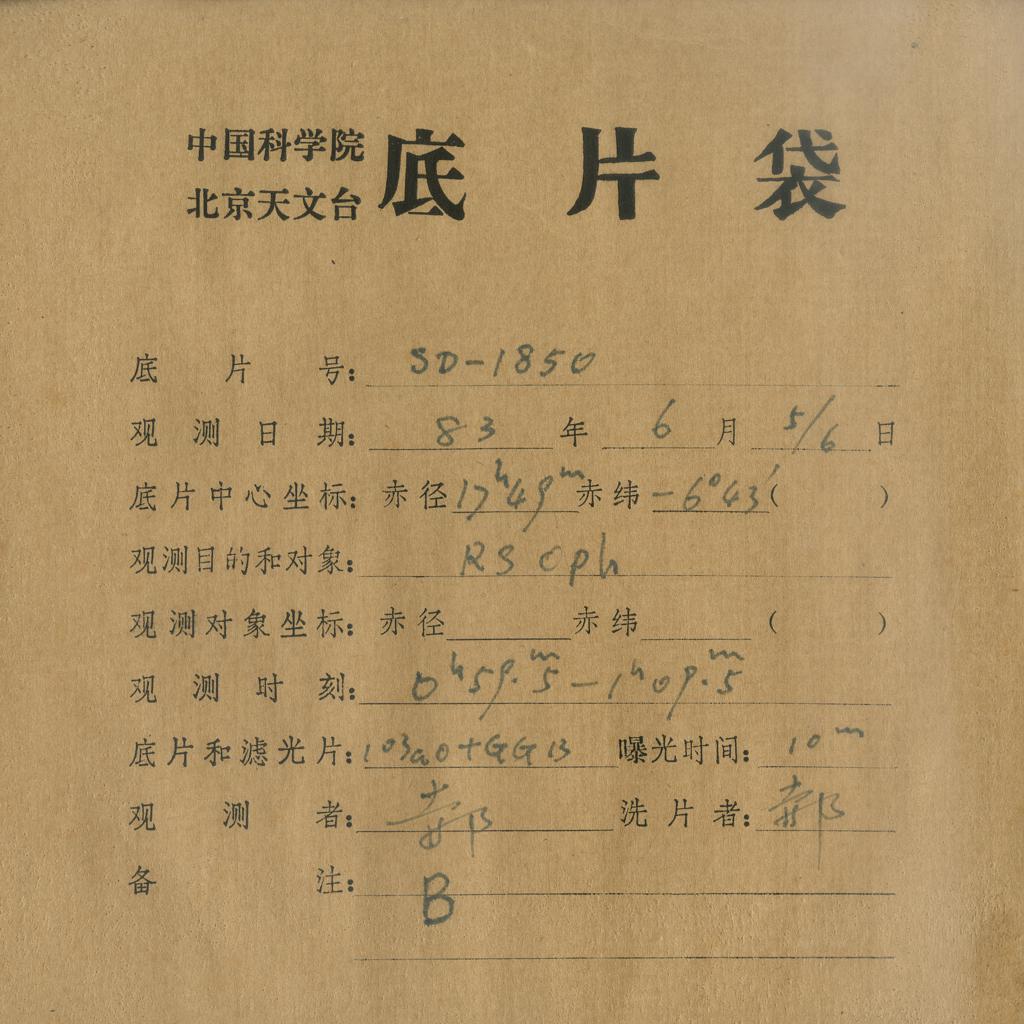 中国科学院
北京天文台 底片袋
底片号： SD-1850
观测日期： 83 年 6 月 5/6 日
底片中心坐标： 赤径 17h49m 赤纬 -6°43′ (  )
观测目的和对象： RS Oph
观测对象坐标： 赤径 赤纬 (  )
观测时刻： 0h59m.5-1h09m.5
底片和滤光片： 103aO+GG13 曝光时间： 10m
观测者： 郝 洗片者： 郝
备注： B